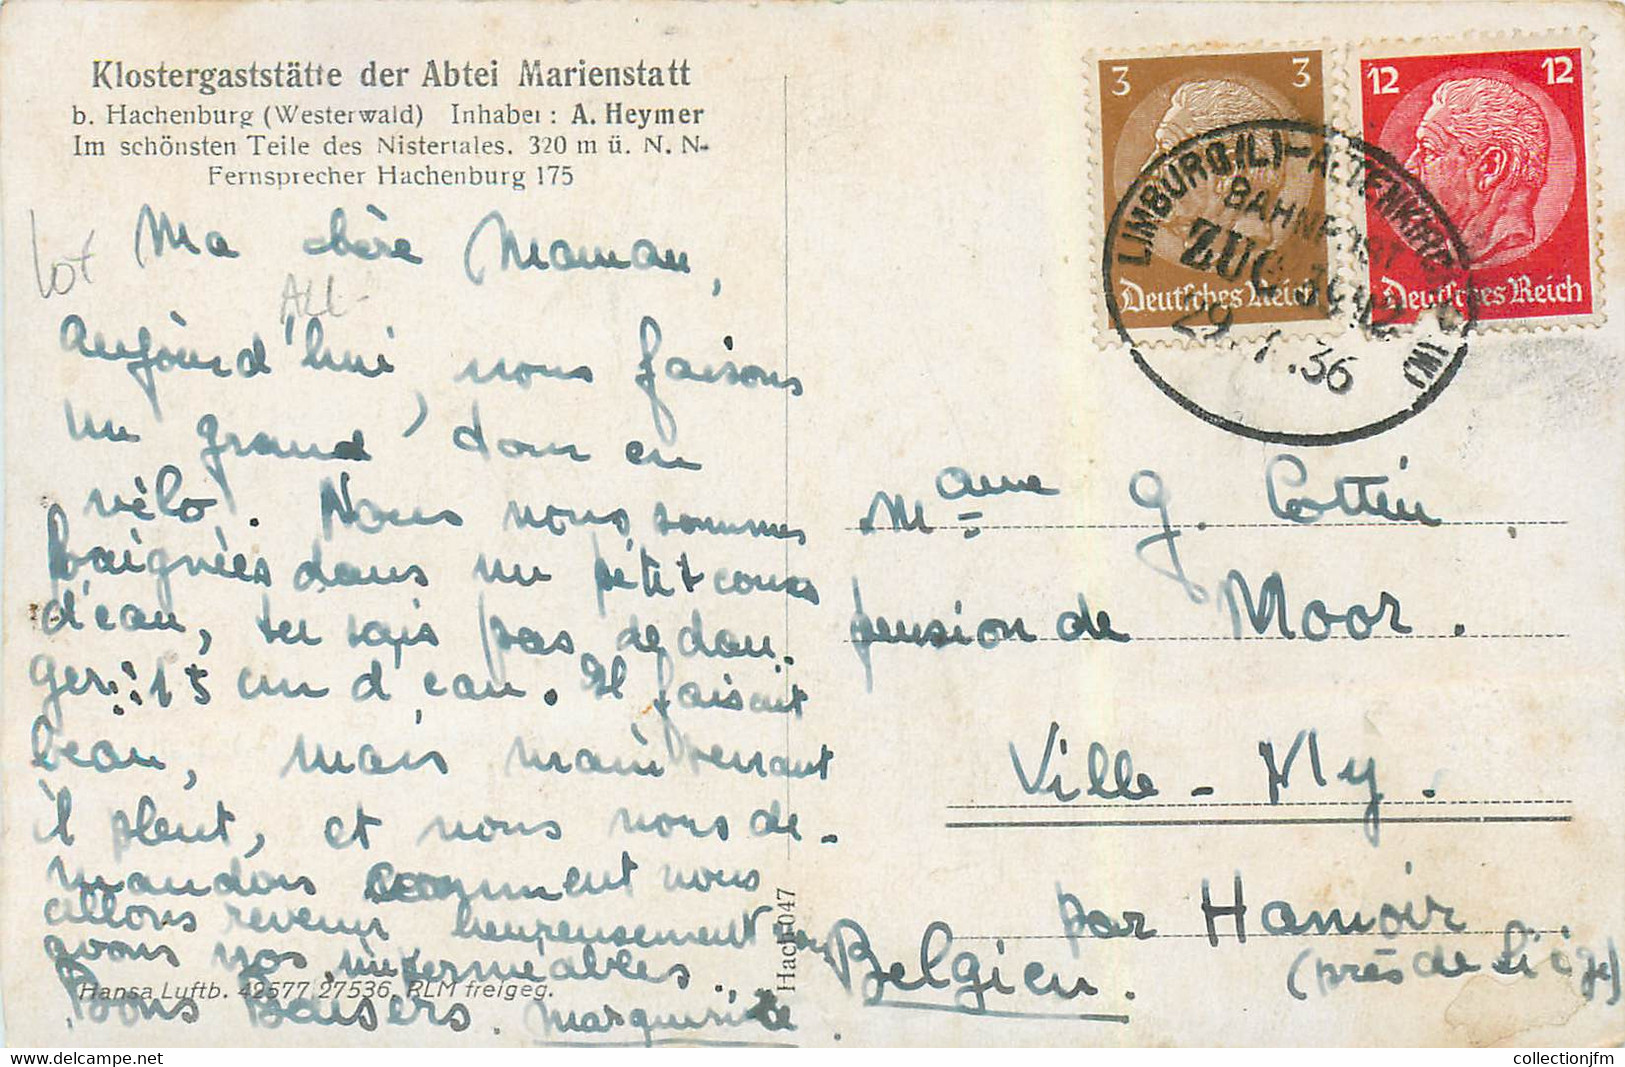 Klostergaststätte der Abtei Marienstatt
b. Hachenburg (Westerwald) Inhaber: A. Heymer
Im schönsten Teile des Nistertales. 320 m ü. N. N-
Fernsprecher Hachenburg 175
lot
All-
Ma chère Maman,
aujourd'hui, nous faisons
un grand tour en
vélo. Nous nous sommes
baignées dans un petit cours
d'eau, tu sais pas de dan-
ger: 15 cm d'eau. Il faisait
beau, mais maintenant
il pleut, et nous nous de-
mandons comment nous
allons revenir heureusement nous
avons nos imperméables.
Bons Baisers. Marguerite
Hansa Luftb. 42577 27536, RLM freigeg.
Hach 047
3 3
Deutsches Reich
12 12
Deutsches Reich
LIMBURG (L)-ALTENKIRCHEN (WW)
BAHNPOST
ZUG
29. .36
Mame G. Cottin,
pension de Moor.
Ville-My.
par Hamoir
(près de Liège)
Belgien.
collectionjfm